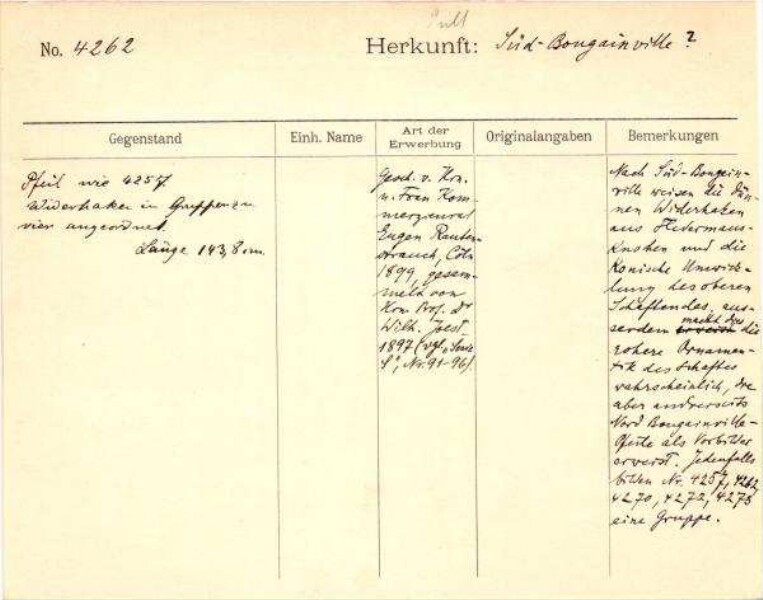 No. 4262
Herkunft: Süd-Bougainville?
Gegenstand
Einh. Name
Art der
Erwerbung
Originalangaben
Bemerkungen
Pfeil wie 4257
Widerhaken in Gruppen zu
vier angeordnet.
Länge 143,8 cm.
Gesch. v. Hrn.
u. Frau Kom-
merzienrat
Eugen Rauten-
strauch, Cöln
1899, gesam-
melt von
Hrn Prof. Dr
Wilh. Joest
1897 (vgl. „Serie
S“, Nr. 91-96).
Nach Süd-Bougain-
ville weisen die dün-
nen Widerhaken
aus Fledermaus-
knochen und die
konische Umwick-
lung des oberen
Schaftendes, aus-
serdem macht dies die
rohere Ornamen-
tik des Schaftes
wahrscheinlich, die
aber andrerseits
Nord Bougainville-
Pfeile als Vorbilder
erweist. Jedenfalls
bilden Nr. 4257, 4262,
4270, 4272, 4278
eine Gruppe.